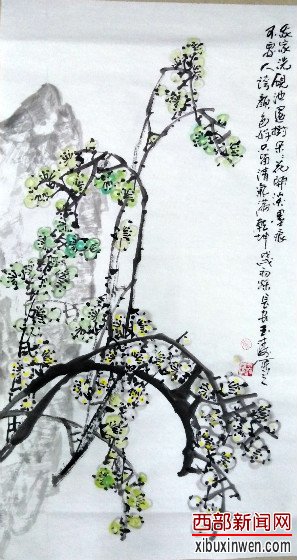 我家洗硯池邊樹朵朵花開淡墨痕
不要人誇顏色好只留清氣滿乾坤
西部新闻网
xibuxinwen.com